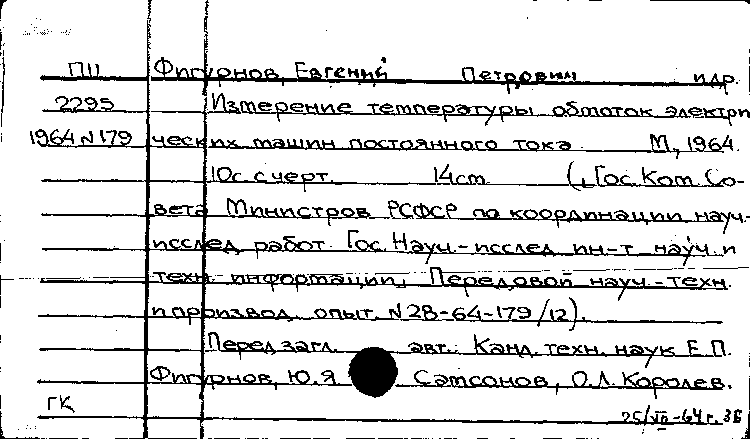 ПII Фигурнов, Евгений Петрович и др.
2295 Измерение температуры обмоток электри
1964 N 179 ческих машин постоянного тока М., 1964.
10с. с черт. 14см (Гос. Ком. Со-
вета Министров РСФСР по координации науч.-
исслед. работ. Гос. Науч.-исслед. ин-т науч. и
техн. информации. Передовой науч.-техн.
и производ. опыт. N 28-64-179/12).
Перед загл. авт.: Канд. техн. наук Е.П.
Фигурнов, Ю.Я Самсонов, О.Л. Королев.
ГК
25/VII-64г. 36